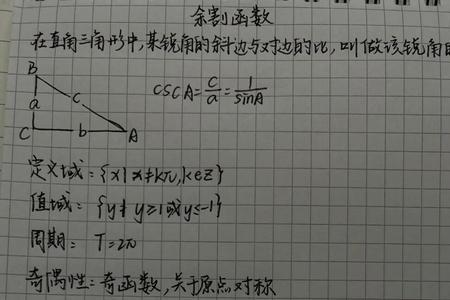 余割函数
在直角三角形中,某锐角的斜边与对边的比,叫做该锐角的
B
a
c
cscA=c/a=1/sinA
C
b
A
定义域:{x|x≠kπ,k∈z}
值域:{y|y≥1或y≤-1}
周期:T=2π
奇偶性:奇函数,关于原点对称